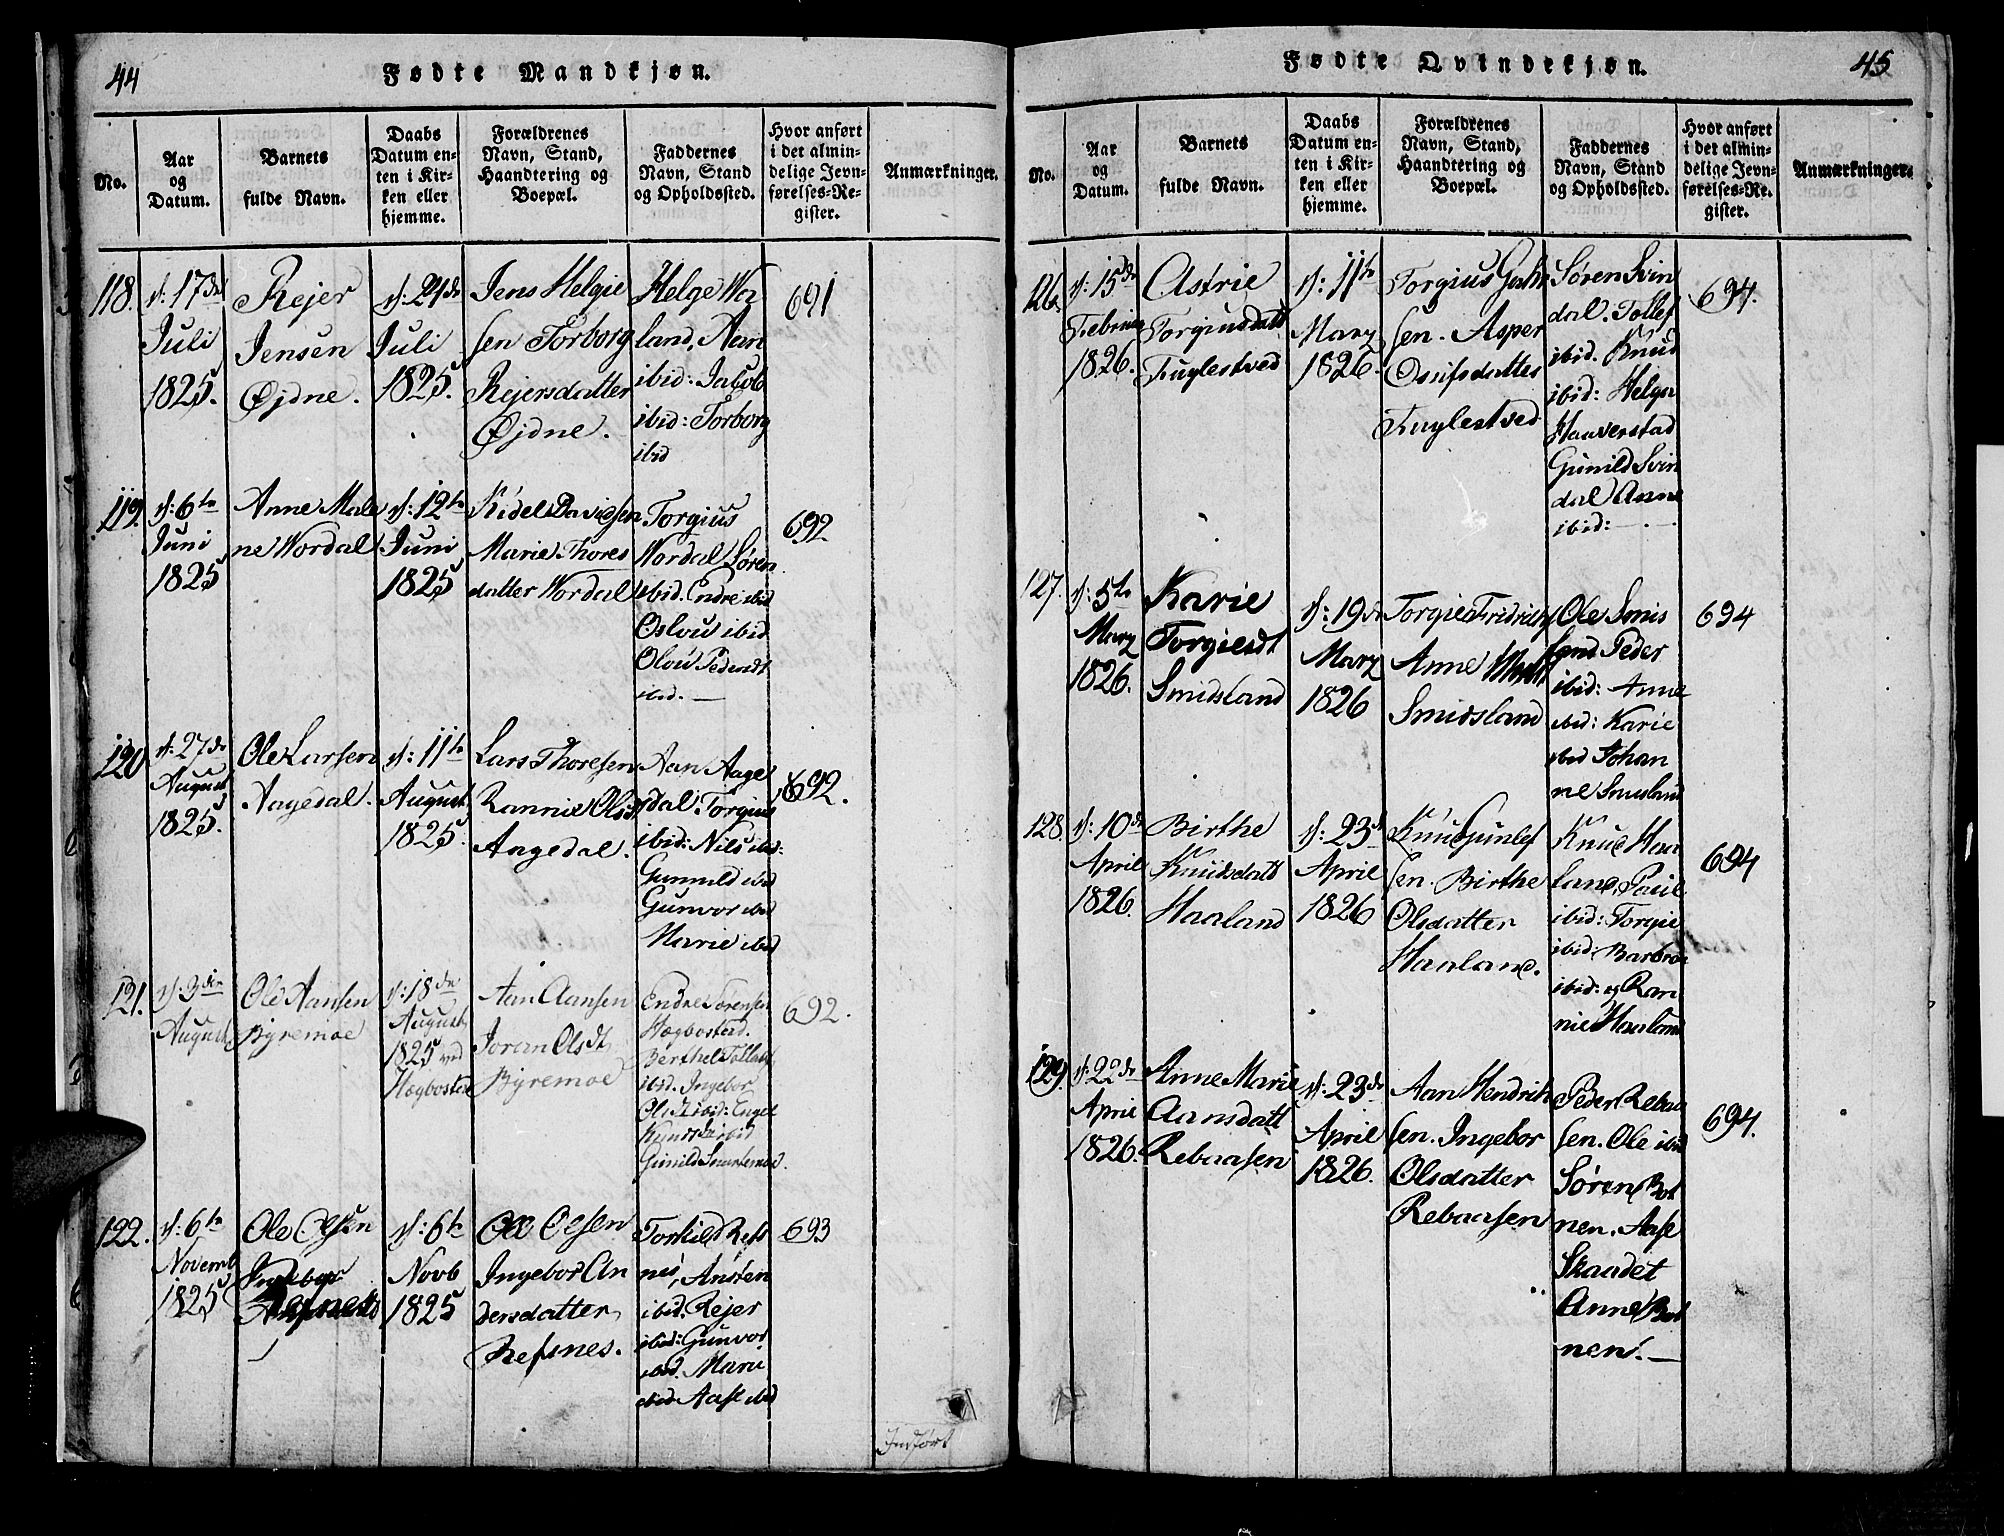 44
Fødte Mandkjøn.
No.
Aar
og
Datum.
Barnets
fulde Navn.
Daabs
Datum en-
ten i Kir-
ken eller
hjemme.
Forældrenes
Navn, Stand,
Haandtering og
Boepæl.
Faddernes
Navn, Stand
og Opholdssted.
Hvor anført
i det almin-
delige Jevn-
førelses-Re-
gister.
Anmærkninger.
118.
d: 17de
Juli
1825.
Rejer
Jensen
Øjdne.
d: 24de
Juli
1825.
Jens Helgie
sen Torborg
Rejersdatter
Øjdne.
Helge Wo
land, Aan
ibid: Jakob
ibid: Torborg
ibid
691
119.
d: 6te
Juni
1825
Anne Male
ne Wordal
d: 12te
Juni
1825
Kidel Davidsen
Marie Thores
datter Wordal
Torgius
Wordal Søren
ibid. Endre ibid
Oslou ibid
Olou Pedersdt
ibid. —
692
120
d: 27de
August
1825.
Ole Larsen
Aagedal.
d: 11te
August
1825.
Lars Thoresen
Rannie Olsd
Aagedal.
Aan Aage
dal. Torgius
ibid: Nils ibd:
Gunnild ibid
Gunvor ibid
Marie ibid
692.
121.
d: 3die
August
Ole Aansen
Byremoe
d: 18de
August
1825 ved
Hægbostad
Aan Aansen
Joran Olsdt
Byremoe
Endre Sørensen
Hægbostad.
Berthel Tollefs
ibid. Ingebor
Olsdt ibid: Engel
Knudsd ibid
Gunild Snartemoe.
692.
122.
d: 6te
Novemb
1825
Ole Olsen
Refsnes
d: 6te
Novb
1825
Ole Olsen
Ingebor An
dersdatter
Refsnes.
Torkild Refs
nes, Ansten
ibid. Rejer
ibid: Gunvor
ibid. Marie
ibid Aase ibid
693
Indført
45
Fødte Qvindekjøn.
No.
Aar
og
Datum.
Barnets
fulde Navn.
Daabs
Datum en-
ten i Kir-
ken eller
hjemme.
Forældrenes
Navn, Stand,
Haandtering og
Boepæl.
Faddernes
Navn, Stand
og Opholdssted.
Hvor anført
i det almin-
delige Jevn-
førelses-Re-
gister.
Anmærkninger.
126.
d: 15de
Februar
1826.
Astrie
Torgiusdatt
Fuglestved
d: 11te
Marz
1826.
Torgius
sen. Asper
Osufsdatter
Fuglestved
Søren Svin
dal. Tollef
ibid. Knud
ibid: Helga
Haaverstad
Gunild Svin
dal Anne
ibid:
694.
127.
d: 5te
Marz
1826.
Karie
Torgiesdt
Smidsland
d: 19de
Marz
1826
Torgie Fridrichs
Anne
Smidsland
Ole Smis
land Peder
ibid: Anne
ibid: Karie
ibid Johan
ne Smisland
694
128.
d: 10de
April
1826.
Birthe
Knudsdatt
Haaland
d: 23de
April
1826
Knud Gunlef
sen. Birthe
Olsdatter
Haaland.
Knud Haa
land, Paul
ibid: Torgie
ibid: Barbroe
ibid: og Ran
nie Haaland
694
129.
d: 22de
April
1826.
Anne Marie
Aansdatt
Rebaasen
d: 23de
April
1826.
Aan Hendrik
sen. Ingebor
Olsdatter
Rebaasen
Peder Rebaa
sen. Ole ibid
Søren Bot
nen. Aase
Skaadet
Anne Bot
nen. —
694.